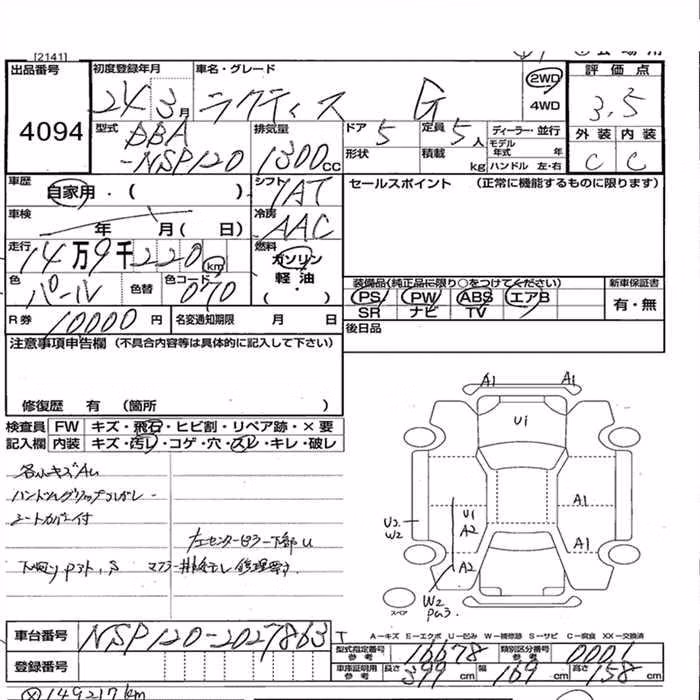 [2141]
出品番号 初度登録年月 車名・グレード 2WD 4WD 評価点
4094 24 3月 ラクティス G 3.5
型式 DBA-NSP120 排気量 1300cc ドア 5 定員 5人 ディーラー・並行 外装 内装
形状 積載 kg モデル年式 年 ハンドル 左・右 C C
車歴 自家用・( ) シフト IAT セールスポイント (正常に機能するものに限ります)
車検 年 月( 日) 冷房 AAC
走行 14万9千220 km 燃料 ガソリン 軽油 ・( )
色 パール 色替 色コード 070
装備品(純正品に限り○をつけてください) 新車保証書
PS PW ABS エアB 有・無
SR ナビ TV
R券 10000円 名変通知期限 月 日 後日品
注意事項申告欄 (不具合内容等は具体的に記入して下さい)
修復歴 有 (箇所 )
検査員記入欄 FW キズ・飛石・ヒビ割・リペア跡・×要
内装 キズ・汚レ・コゲ・穴・スレ・キレ・破レ
各小キズAU
ハンドルグリップコレガレー
シートカバー付
左センターピラー下部U
A1 A1
U1
A1
U2 W2 U1 A2
A1
A2
W2
スペア
A-キズ E-エクボ U-凹み W-補修跡 S-サビ C-腐食 XX-交換済
車台番号 NSP120-2027863
型式指定番号 参考 16678 類別区分番号 参考 0001
登録番号 車庫証明用 参考 長さ 399cm 幅 169cm 高さ 158cm
149217km